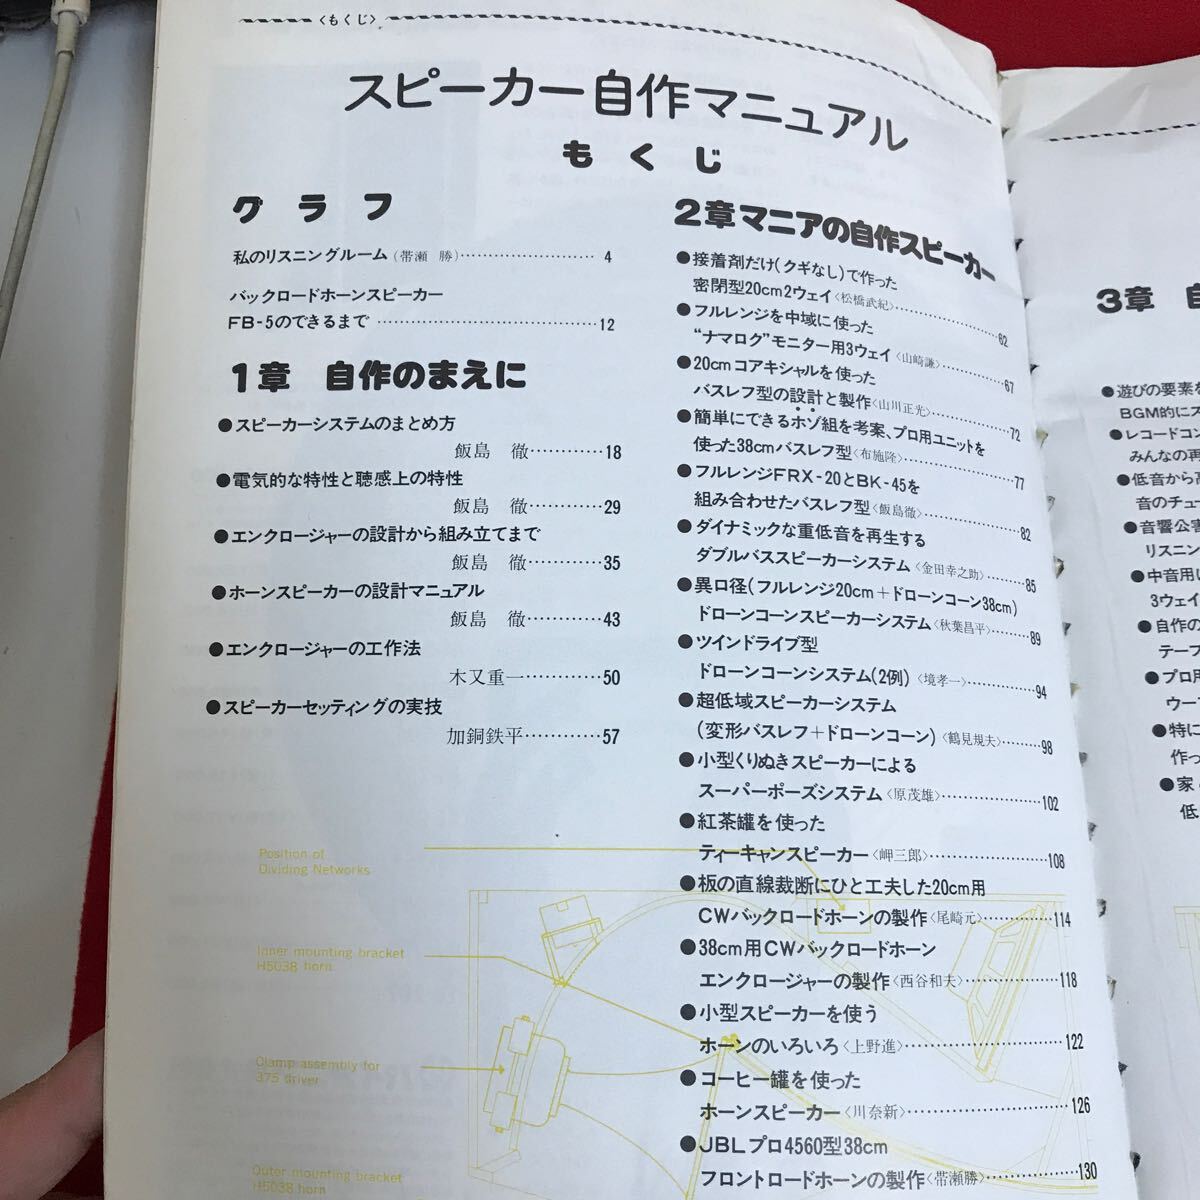 〈もくじ〉
スピーカー自作マニュアル
もくじ
グラフ
私のリスニングルーム(帯瀬 勝)……………………4
バックロードホーンスピーカー
FB-5のできるまで……………………………12
1章 自作のまえに
●スピーカーシステムのまとめ方
飯島 徹…………18
●電気的な特性と聴感上の特性
飯島 徹…………29
●エンクロージャーの設計から組み立てまで
飯島 徹…………35
●ホーンスピーカーの設計マニュアル
飯島 徹…………43
●エンクロージャーの工作法
木又重一…………50
●スピーカーセッティングの実技
加銅鉄平…………57
2章マニアの自作スピーカー
●接着剤だけ(クギなし)で作った
密閉型20cm2ウェイ〈松橋武紀〉……………62
●フルレンジを中域に使った
“ナマロク”モニター用3ウェイ〈山崎謙〉…………67
●20cmコアキシャルを使った
バスレフ型の設計と製作〈山川正光〉…………72
●簡単にできるホゾ組を考案、プロ用ユニットを
使った38cmバスレフ型〈布施隆〉……………77
●フルレンジFRX-20とBK-45を
組み合わせたバスレフ型〈飯島徹〉……………82
●ダイナミックな重低音を再生する
ダブルバススピーカーシステム〈金田幸之助〉………85
●異口径(フルレンジ20cm+ドローンコーン38cm)
ドローンコーンスピーカーシステム〈秋葉昌平〉………89
●ツインドライブ型
ドローンコーンシステム(2例)〈境孝一〉…………94
●超低域スピーカーシステム
(変形バスレフ+ドローンコーン)〈鶴見規夫〉………98
●小型くりぬきスピーカーによる
スーパーポーズシステム〈原茂雄〉……………102
●紅茶罐を使った
ティーキャンスピーカー〈岬三郎〉……………108
●板の直線裁断にひと工夫した20cm用
CWバックロードホーンの製作〈尾崎元〉…………114
●38cm用CWバックロードホーン
エンクロージャーの製作〈西谷和夫〉……………118
●小型スピーカーを使う
ホーンのいろいろ〈上野進〉……………………122
●コーヒー罐を使った
ホーンスピーカー〈川奈新〉……………………126
●JBLプロ4560型38cm
フロントロードホーンの製作〈帯瀬勝〉…………130
Position of
Dividing Networks
Inner mounting bracket
H5038 horn
Clamp assembly for
375 driver
Outer mounting bracket
H5038 horn
3章 自
●遊びの要素を
BGM的にス
●レコードコン
みんなの再
●低音から高
音のチュー
●音響公害
リスニン
●中音用に
3ウェイ
●自作の
テープ
●プロ用
ウーフ
●特に
作っ
●家
低